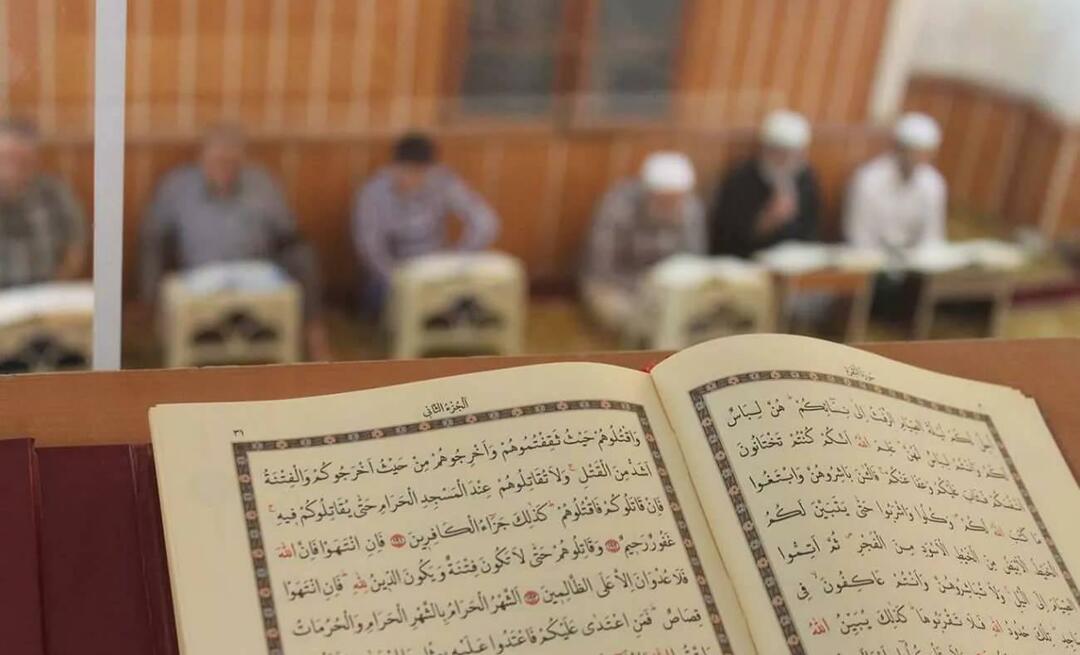 سُورَةُ الْبَقَرَةِ
أُحِلَّ لَكُمْ لَيْلَةَ الصِّيَامِ الرَّفَثُ إِلَى نِسَائِكُمْ هُنَّ لِبَاسٌ
لَكُمْ وَأَنْتُمْ لِبَاسٌ لَهُنَّ عَلِمَ اللهُ أَنَّكُمْ كُنْتُمْ تَخْتَانُونَ
أَنْفُسَكُمْ فَتَابَ عَلَيْكُمْ وَعَفَا عَنْكُمْ فَالْآنَ بَاشِرُوهُنَّ وَابْتَغُوا
مَا كَتَبَ اللهُ لَكُمْ وَكُلُوا وَاشْرَبُوا حَتَّى يَتَبَيَّنَ لَكُمُ
الْخَيْطُ الْأَبْيَضُ مِنَ الْخَيْطِ الْأَسْوَدِ مِنَ الْفَجْرِ ثُمَّ أَتِمُّوا
الصِّيَامَ إِلَى اللَّيْلِ وَلَا تُبَاشِرُوهُنَّ وَأَنْتُمْ عَاكِفُونَ فِي
تِلْكَ حُدُودُ اللهِ فَلَا تَقْرَبُوهَا كَذَلِكَ يُبَيِّنُ اللهُ
اَلْجُزْءُ الثَّانِي
وَاقْتُلُوهُمْ حَيْثُ ثَقِفْتُمُوهُمْ وَأَخْرِجُوهُمْ مِنْ حَيْثُ أَخْرَجُوكُمْ وَالْفِتْنَةُ
أَشَدُّ مِنَ الْقَتْلِ وَلَا تُقَاتِلُوهُمْ عِنْدَ الْمَسْجِدِ الْحَرَامِ حَتَّى يُقَاتِلُوكُمْ فِيهِ
فَإِنْ قَاتَلُوكُمْ فَاقْتُلُوهُمْ كَذَلِكَ جَزَاءُ الْكَافِرِينَ فَإِنِ انْتَهَوْا فَإِنَّ اللهَ
غَفُورٌ رَحِيمٌ وَقَاتِلُوهُمْ حَتَّى لَا تَكُونَ فِتْنَةٌ وَيَكُونَ الدِّينُ لِلهِ فَإِنِ انْتَهَوْا
فَلَا عُدْوَانَ إِلَّا عَلَى الظَّالِمِينَ اَلشَّهْرُ الْحَرَامُ بِالشَّهْرِ الْحَرَامِ وَالْحُرُمَاتُ
قِصَاصٌ فَمَنِ اعْتَدَى عَلَيْكُمْ فَاعْتَدُوا عَلَيْهِ بِمِثْلِ